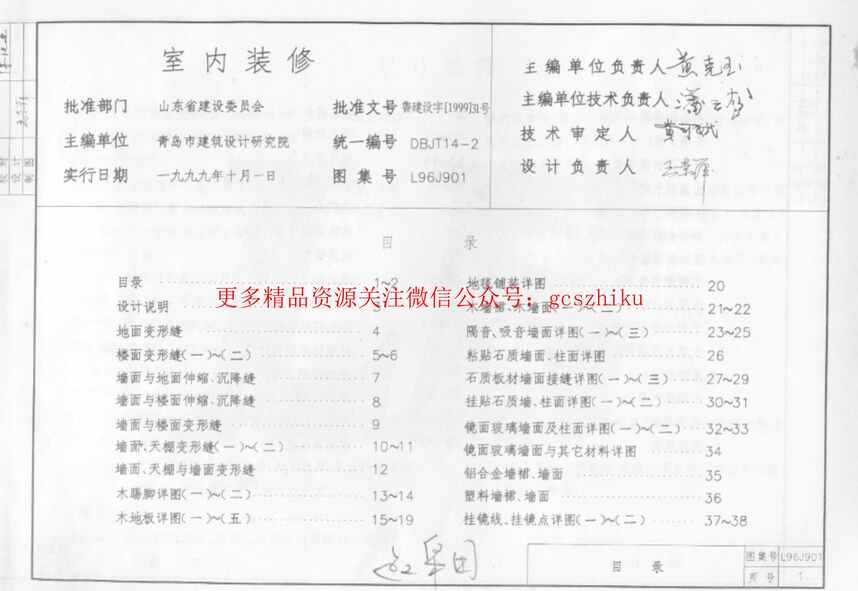 室内装修
批准部门 山东省建设委员会 批准文号 鲁建设字[1999]31号
主编单位 青岛市建筑设计研究院 统一编号 DBJT14-2
实行日期 一九九九年十月一日 图集号 L96J901
主编单位负责人
主编单位技术负责人
技术审定人
设计负责人
目 录
目录 1~2
设计说明 3
地面变形缝 4
楼面变形缝(一)~(二) 5~6
墙面与地面伸缩、沉降缝 7
墙面与楼面伸缩、沉降缝 8
墙面与楼面变形缝 9
墙面、天棚变形缝(一)~(二) 10~11
墙面、天棚与墙面变形缝 12
木踢脚详图(一)~(二) 13~14
木地板详图(一)~(五) 15~19
地毯铺装详图 20
木墙裙、木墙面(一)~(二) 21~22
隔音、吸音墙面详图(一)~(三) 23~25
粘贴石质墙面、柱面详图 26
石质板材墙面接缝详图(一)~(三) 27~29
挂贴石质墙、柱面详图(一)~(二) 30~31
镜面玻璃墙面及柱面详图(一)~(二) 32~33
镜面玻璃墙面与其它材料详图 34
铝合金墙裙、墙面 35
塑料墙裙、墙面 36
挂镜线、挂镜点详图(一)~(二) 37~38
更多精品资源关注微信公众号：gcszhiku
目 录
图集号 L96J901
页号 1
校对
设计
制图